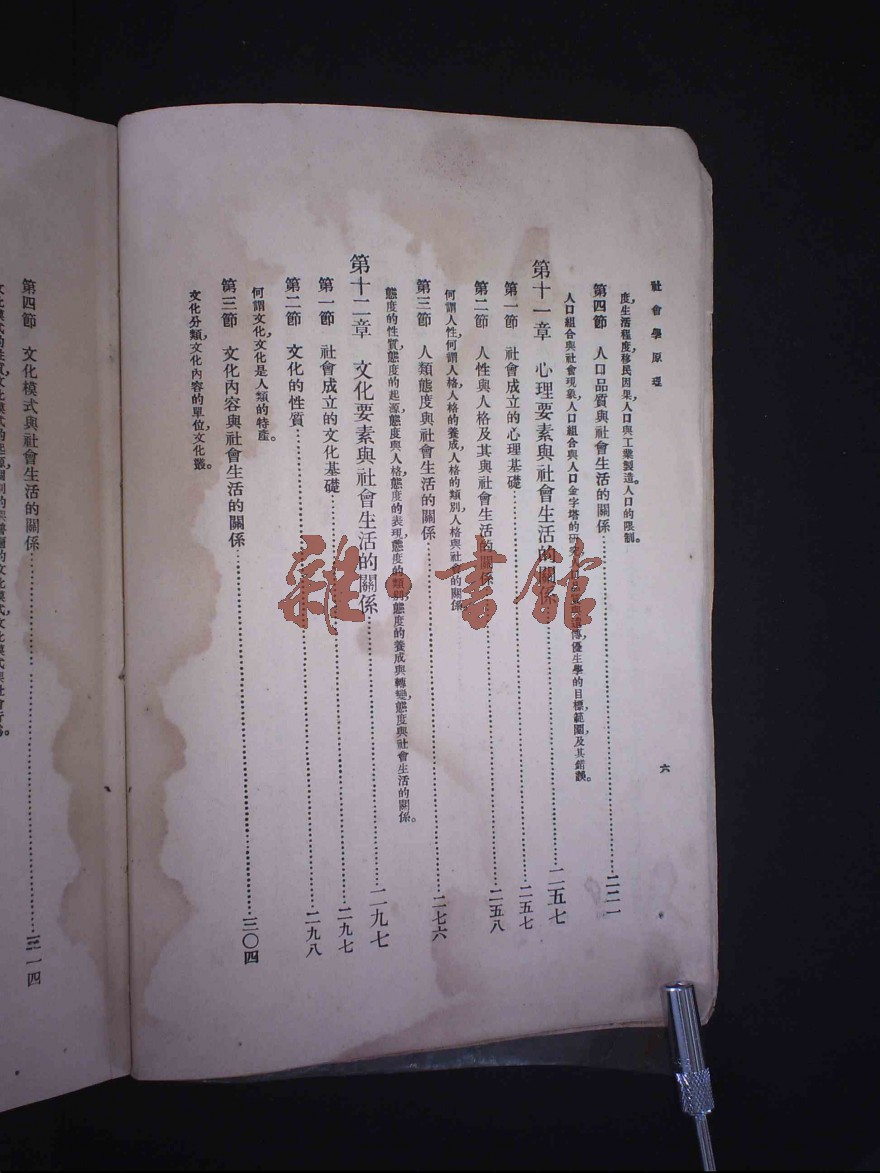 社會學原理
六
度,生活程度,移民因果,人口與工業製造。人口的限制。
第四節 人口品質與社會生活的關係……二二一
人口組合與社會現象,人口組合與人口金字塔的研究,人口品質與遺傳,優生學的目標,範圍,及其錯誤。
第十一章 心理要素與社會生活的關係……二五七
第一節 社會成立的心理基礎……二五七
第二節 人性與人格及其與社會生活的關係……二五八
何謂人性,何謂人格,人格的養成,人格的類別,人格與社會的關係
第三節 人類態度與社會生活的關係……二七六
態度的性質,態度的起源,態度與人格,態度的表現,態度的類別,態度的養成與轉變,態度與社會生活的關係。
第十二章 文化要素與社會生活的關係……二九七
第一節 社會成立的文化基礎……二九七
第二節 文化的性質……二九八
何謂文化,文化是人類的特產。
第三節 文化內容與社會生活的關係……三〇四
文化分類,文化內容的單位,文化叢。
第四節 文化模式與社會生活的關係……三一四
雜·書館